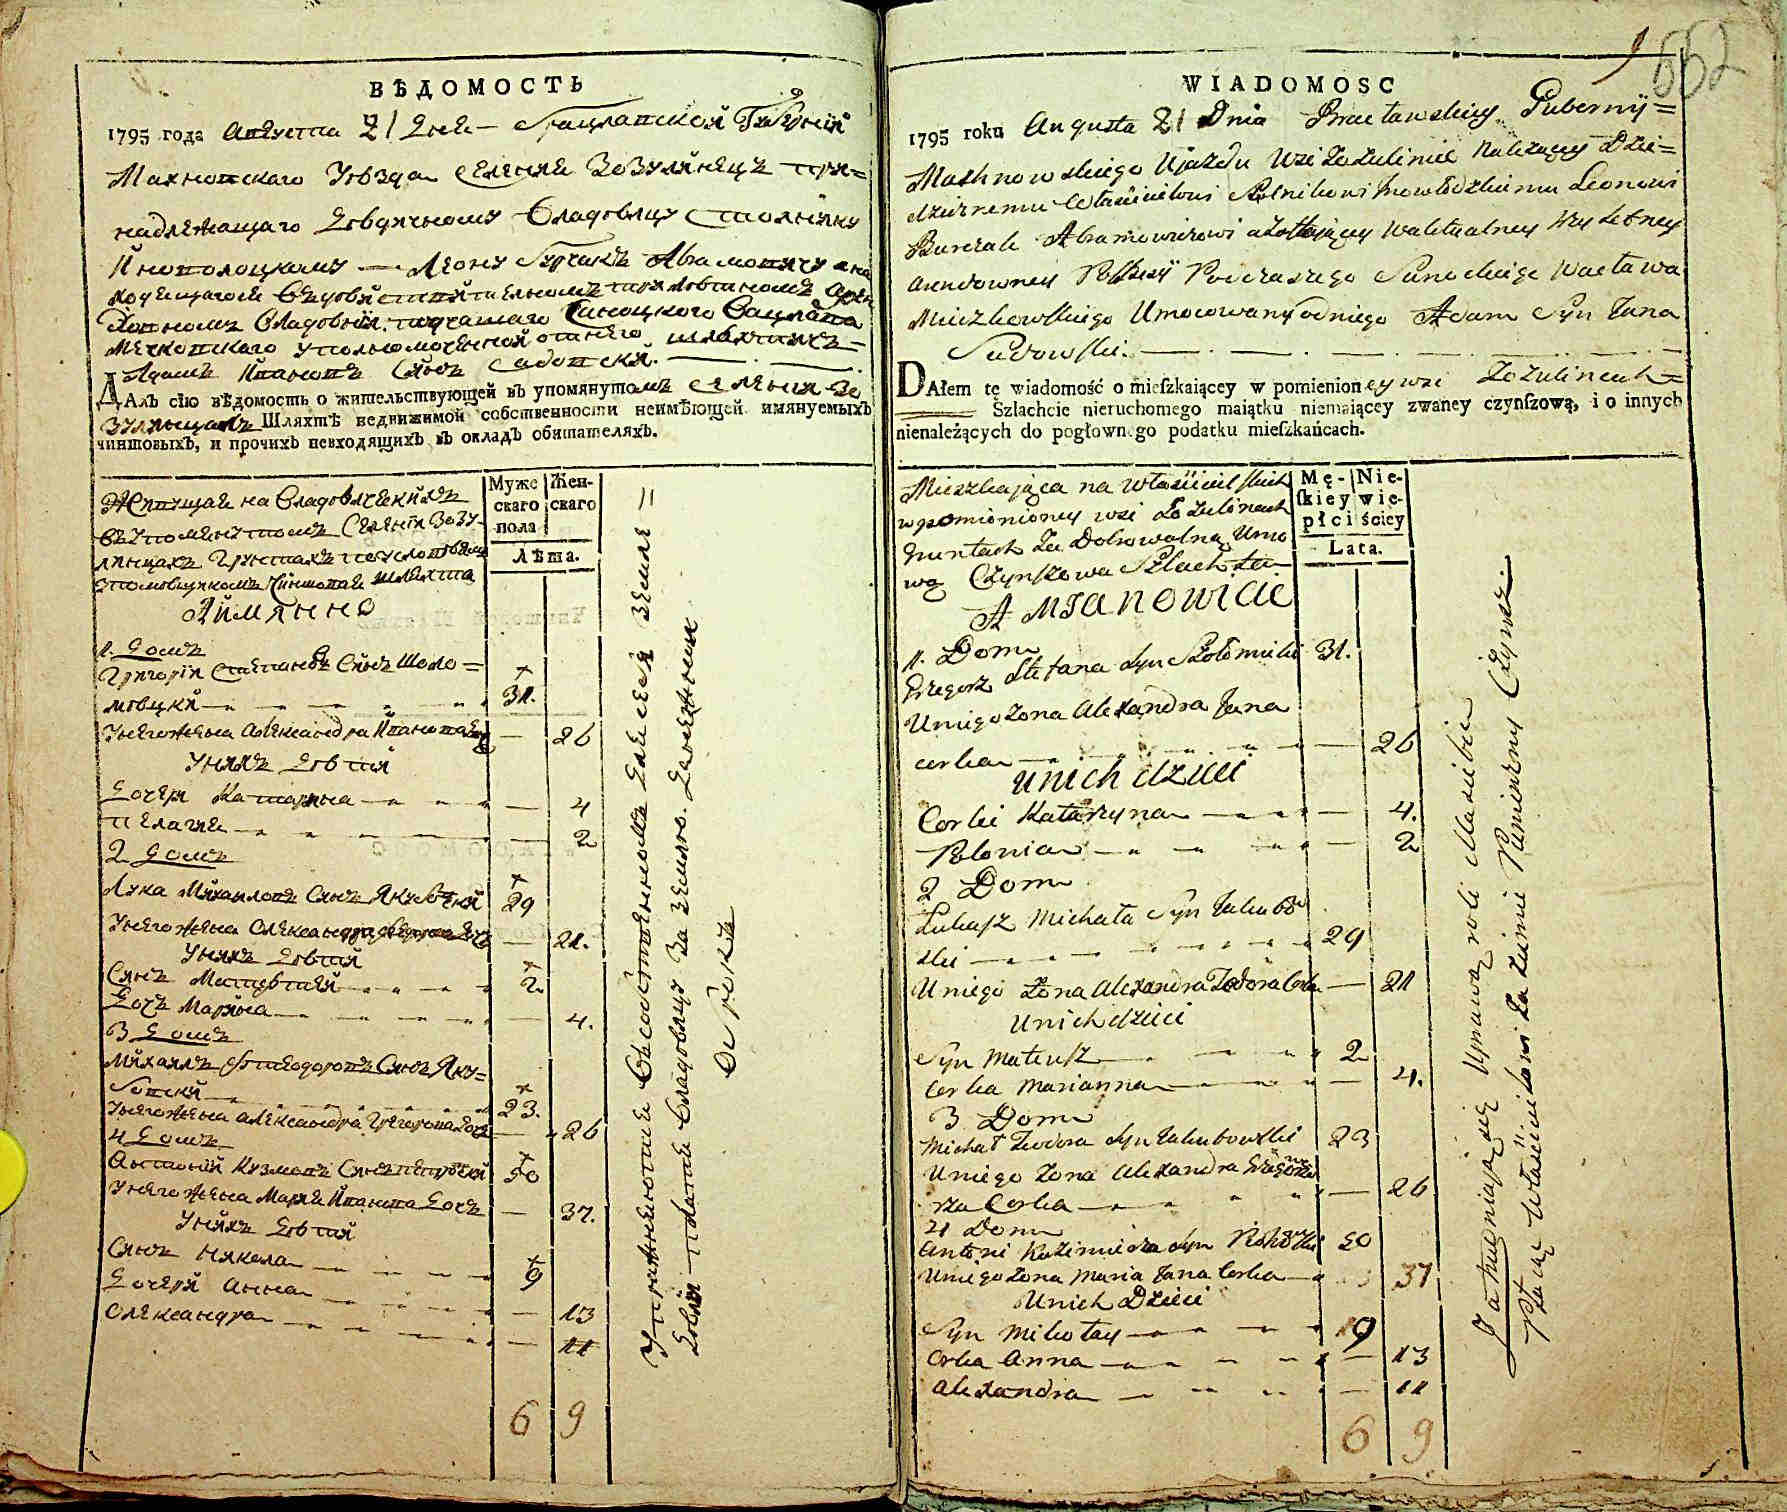 ВѢДОМОСТЬ
1795 года Августа 21 Дня Брацлавской Губерніи
Махновскаго Уѣзда Селенія Зозулинецъ при=
надлежащаго Дѣдичному Владѣльцу Столнику
Леону Бурчакъ Абрамовичу а на
Владѣніи подчашаго Саноцкого Вацлава
Мечковскаго уполномоченной отнего шляхтичъ
Адамъ Ивановъ Сынъ Садовскій.
ДАлъ сію вѣдомость о жительствующей въ упомянутомъ селеніи Зо
зулинцахъ Шляхтѣ недвижимой собственности неимѣющей имянуемыхъ
чиншовыхъ, и прочихъ невходящихъ въ окладъ обитателяхъ.
Муже скаго пола Жен- скаго
Лѣта.
Живущая на Владѣлческихъ
въ упомянутомъ Селеніи Зозу-
линцахъ Грунтахъ
Чиншовая шляхта
Аимянно
1. Домъ
Григорій Степановъ Сынъ Шоло=
мѣцкій 31.
Унего жена Александра Иванова 26
Унихъ Дѣтей
Дочери Катарина 4
Пелагия 2
2 Домъ
Лука Михайловъ Сынъ Якубовскій 29
Унего жена Олександра 21.
Унихъ Дѣтей
Сынъ Матвей 2
Дочь Марина 4.
3 Домъ
Михаилъ Феодоровъ Сынъ Яку=
бовскій 23.
Унего жена Александра Григорова Дочь 26
4 Домъ
Антоній Кузмовъ Сынъ 50
Унего жена Марія Иванова Дочь 37.
Унихъ Дѣтей
Сынъ Никола 9
Дочери Анна 13
Олександра 11
6 9
Упражняются въ
владѣлцу за землю
552
WIADOMOSC
1795 roku Augusta 21 Dnia Bracławskiey Gubernij=
Machnowskiego Ujazdu Wsi Zozuliniec Należącey Dzie=
dzicznemu Właścicielowi Stolnikowi Inowłodzkiemu Leonowi
Burczak Abramowiczowi
arendowney Possesyi Podczaszego Sanockiego Wacława
Mieczkowskiego Umocowany odniego Adam Syn Jana
Sadowski.
DAłem tę wiadomość o mieſzkaiącey w pomienioney wsi Zozulincach=
Szlachcie nieruchomego maiątku niemaiącey zwaney czynſzową, i o innych
nienależących do pogłownego podatku mieſzkańcach.
Mę- ſkiey płci Nie- wie- ściey
Lata.
Mieszkająca na właścicielskich
w pomienioney wsi Zozulincach
Gruntach Za Dobrowolną Umo
wą Czynszowa Szlachta
A Mianowicie
1. Dom
Grzegorz Stefana Syn Szołomicki 31.
Uniego Zona Alexandra Jana
corka 26
Unich dzieci
Corki Katarzyna 4.
Polonia 2
2 Dom
Łukasz Michała Syn Jakubow
ski 29
Uniego Zona Alexandra Teodora Corka 21
Unich dzieci
Syn Mateusz 2
Corka Marianna 4.
3 Dom
Michał Teodora Syn Jakubowski 23
Uniego Zona Alexandra Grzego
rza Corka 26
4 Dom
Antoni Kazimierza Syn 50
Uniego Zona Maria Jana Corka 37
Unich Dzieci
Syn Mikołay 9
Corka Anna 13
Alexandra 11
6 9
Zatrudniają się Uprawą roli
Płacąc Właścicielowi Za Ziemie Czynsz.